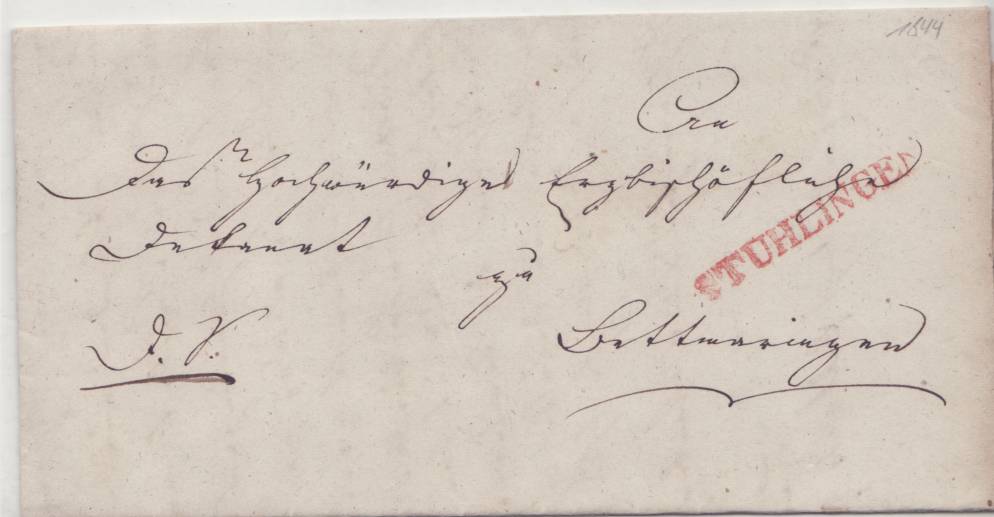 1844
An
Das Hochwürdige Erzbischöfliche
Dekanat
zu
D. S.
Bettmaringen
STUHLINGEN